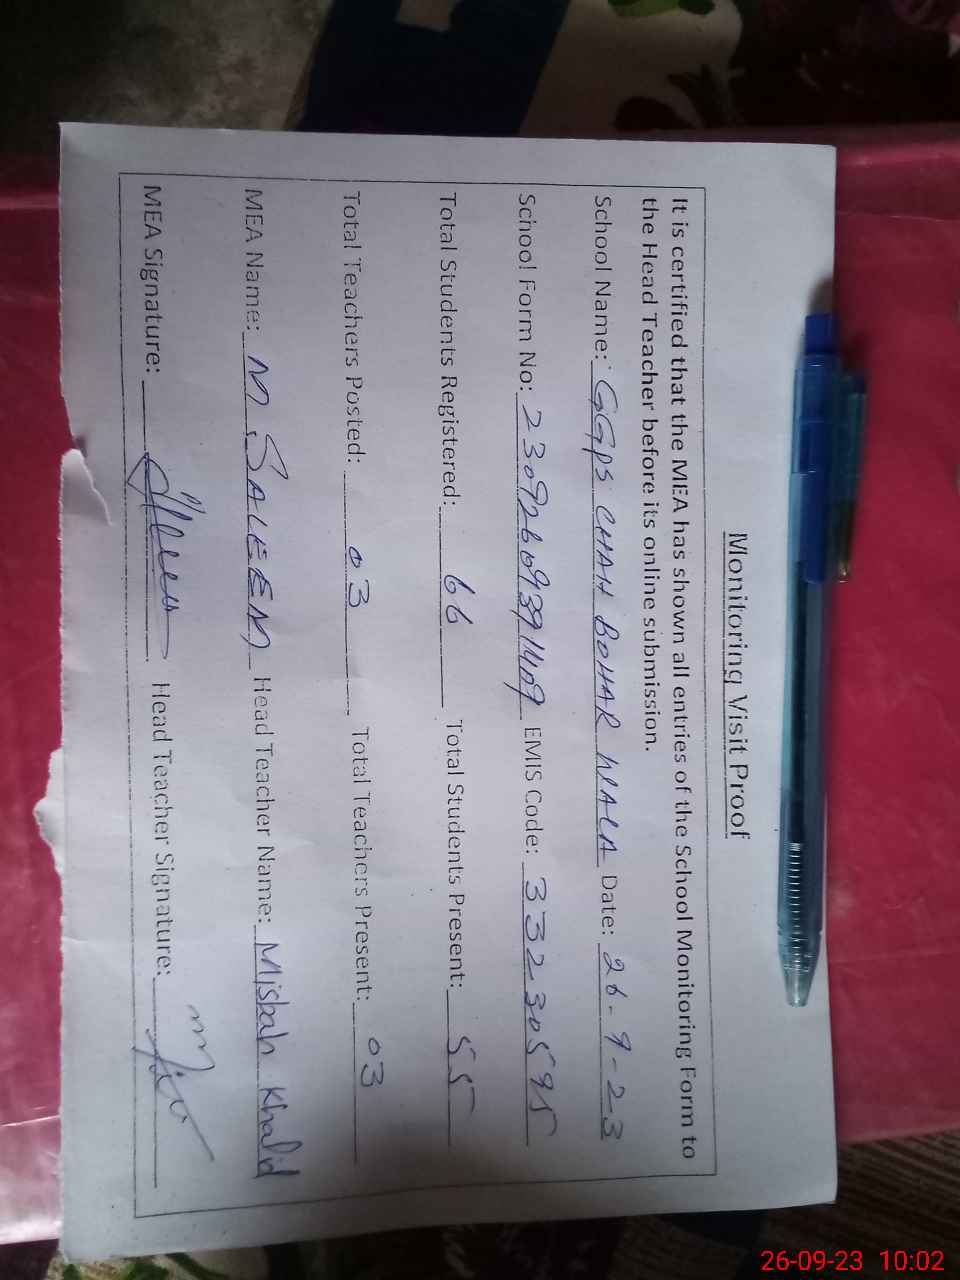 Monitoring Visit Proof
It is certified that the MEA has shown all entries of the School Monitoring Form to
the Head Teacher before its online submission.
School Name: GGPS CHAH BOHAR WALA Date: 26-9-23
School Form No: EMIS Code: 33230595
Total Students Registered: 66 Total Students Present: 55
Total Teachers Posted: 03 Total Teachers Present: 03
MEA Name: M SALEEM Head Teacher Name: Misbah Khalid
MEA Signature: Head Teacher Signature:
26-09-23 10:02